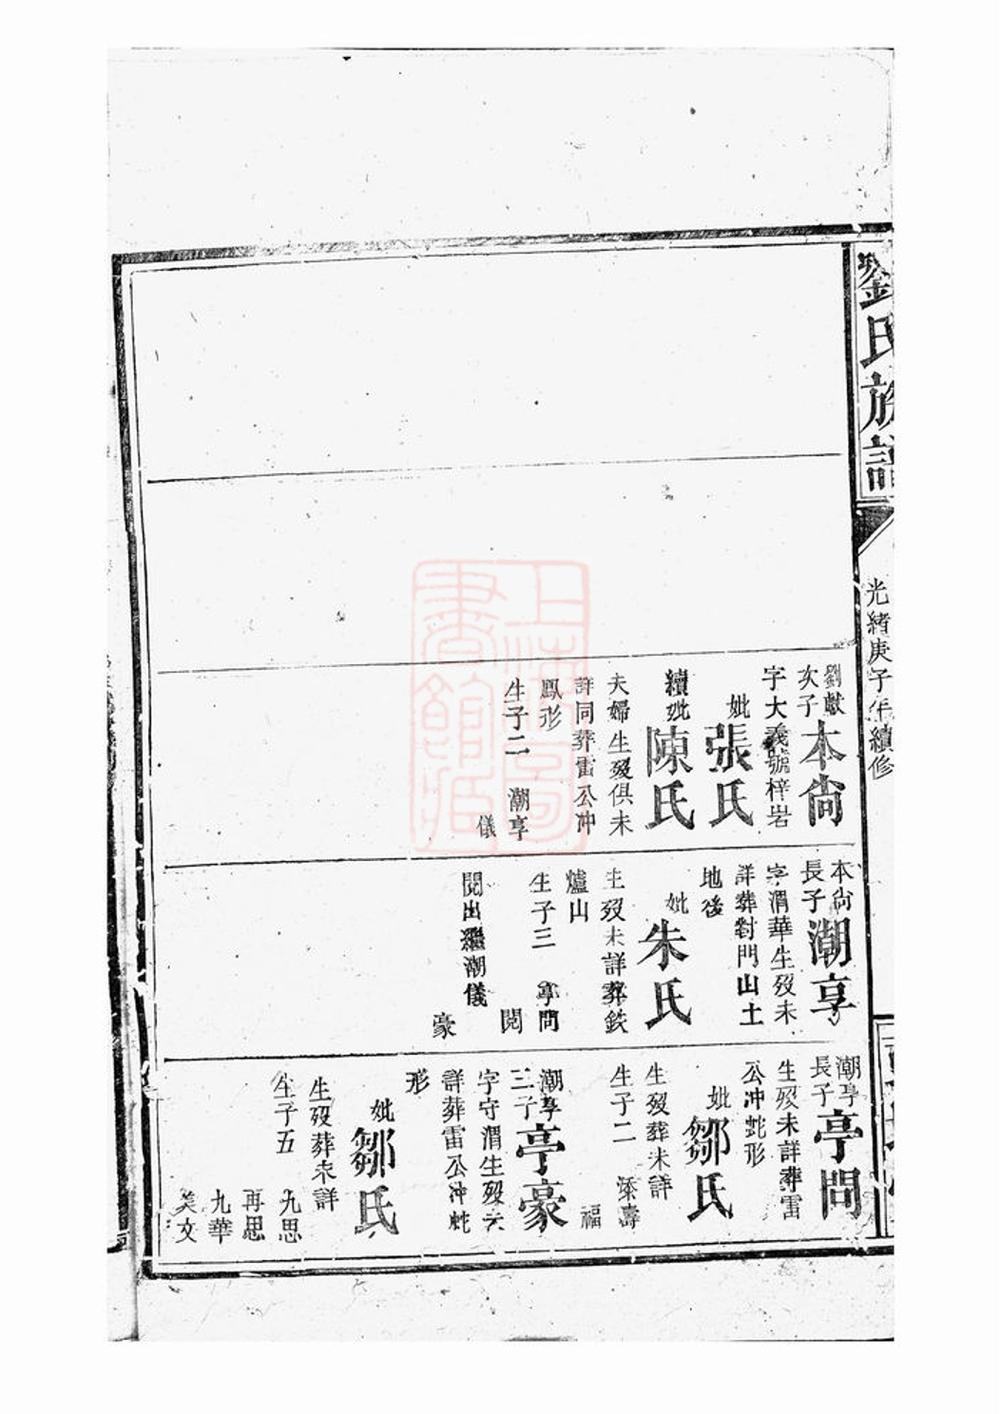 劉氏族譜
光緒庚子年續修
劉獻
次子
本尙
字大義號梓岩
妣張氏
續妣陳氏
夫婦生歿俱未
詳同葬雷公冲
鳳形
生子二 潮享
儀
本尙
長子
潮享
字渭華生歿未
詳葬對門山土
地後
妣朱氏
生歿未詳葬鉄
爐山
生子三 亭問
閱
閱出繼潮儀
豪
潮享
長子
亭問
生歿未詳葬雷
公冲蛇形
妣鄒氏
生歿葬未詳
生子二 添壽
福
潮享
三子
亭豪
字守渭生歿未
詳葬雷公冲蛇
形
妣鄒氏
生歿葬未詳
生子五 九思
再思
九華
美文
上海圖書館藏